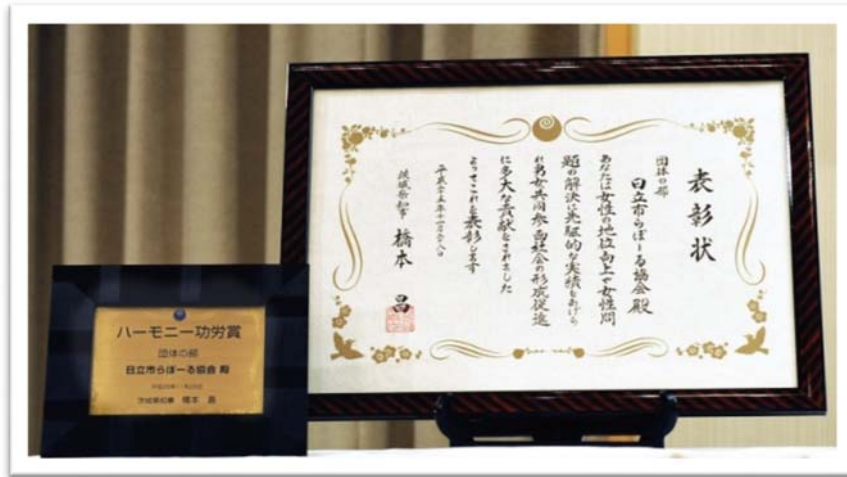 表彰状
団体の部
日立市らぽーる協会殿
あなたは女性の地位向上や女性問
題の解決に先駆的な実績をあげら
れ男女共同参画社会の形成促進
に多大な貢献をされました
よってこれを表彰します
平成二十五年十一月二十八日
茨城県知事 橋本 昌
ハーモニー功労賞
団体の部
日立市らぽーる協会 殿
茨城県知事 橋本 昌